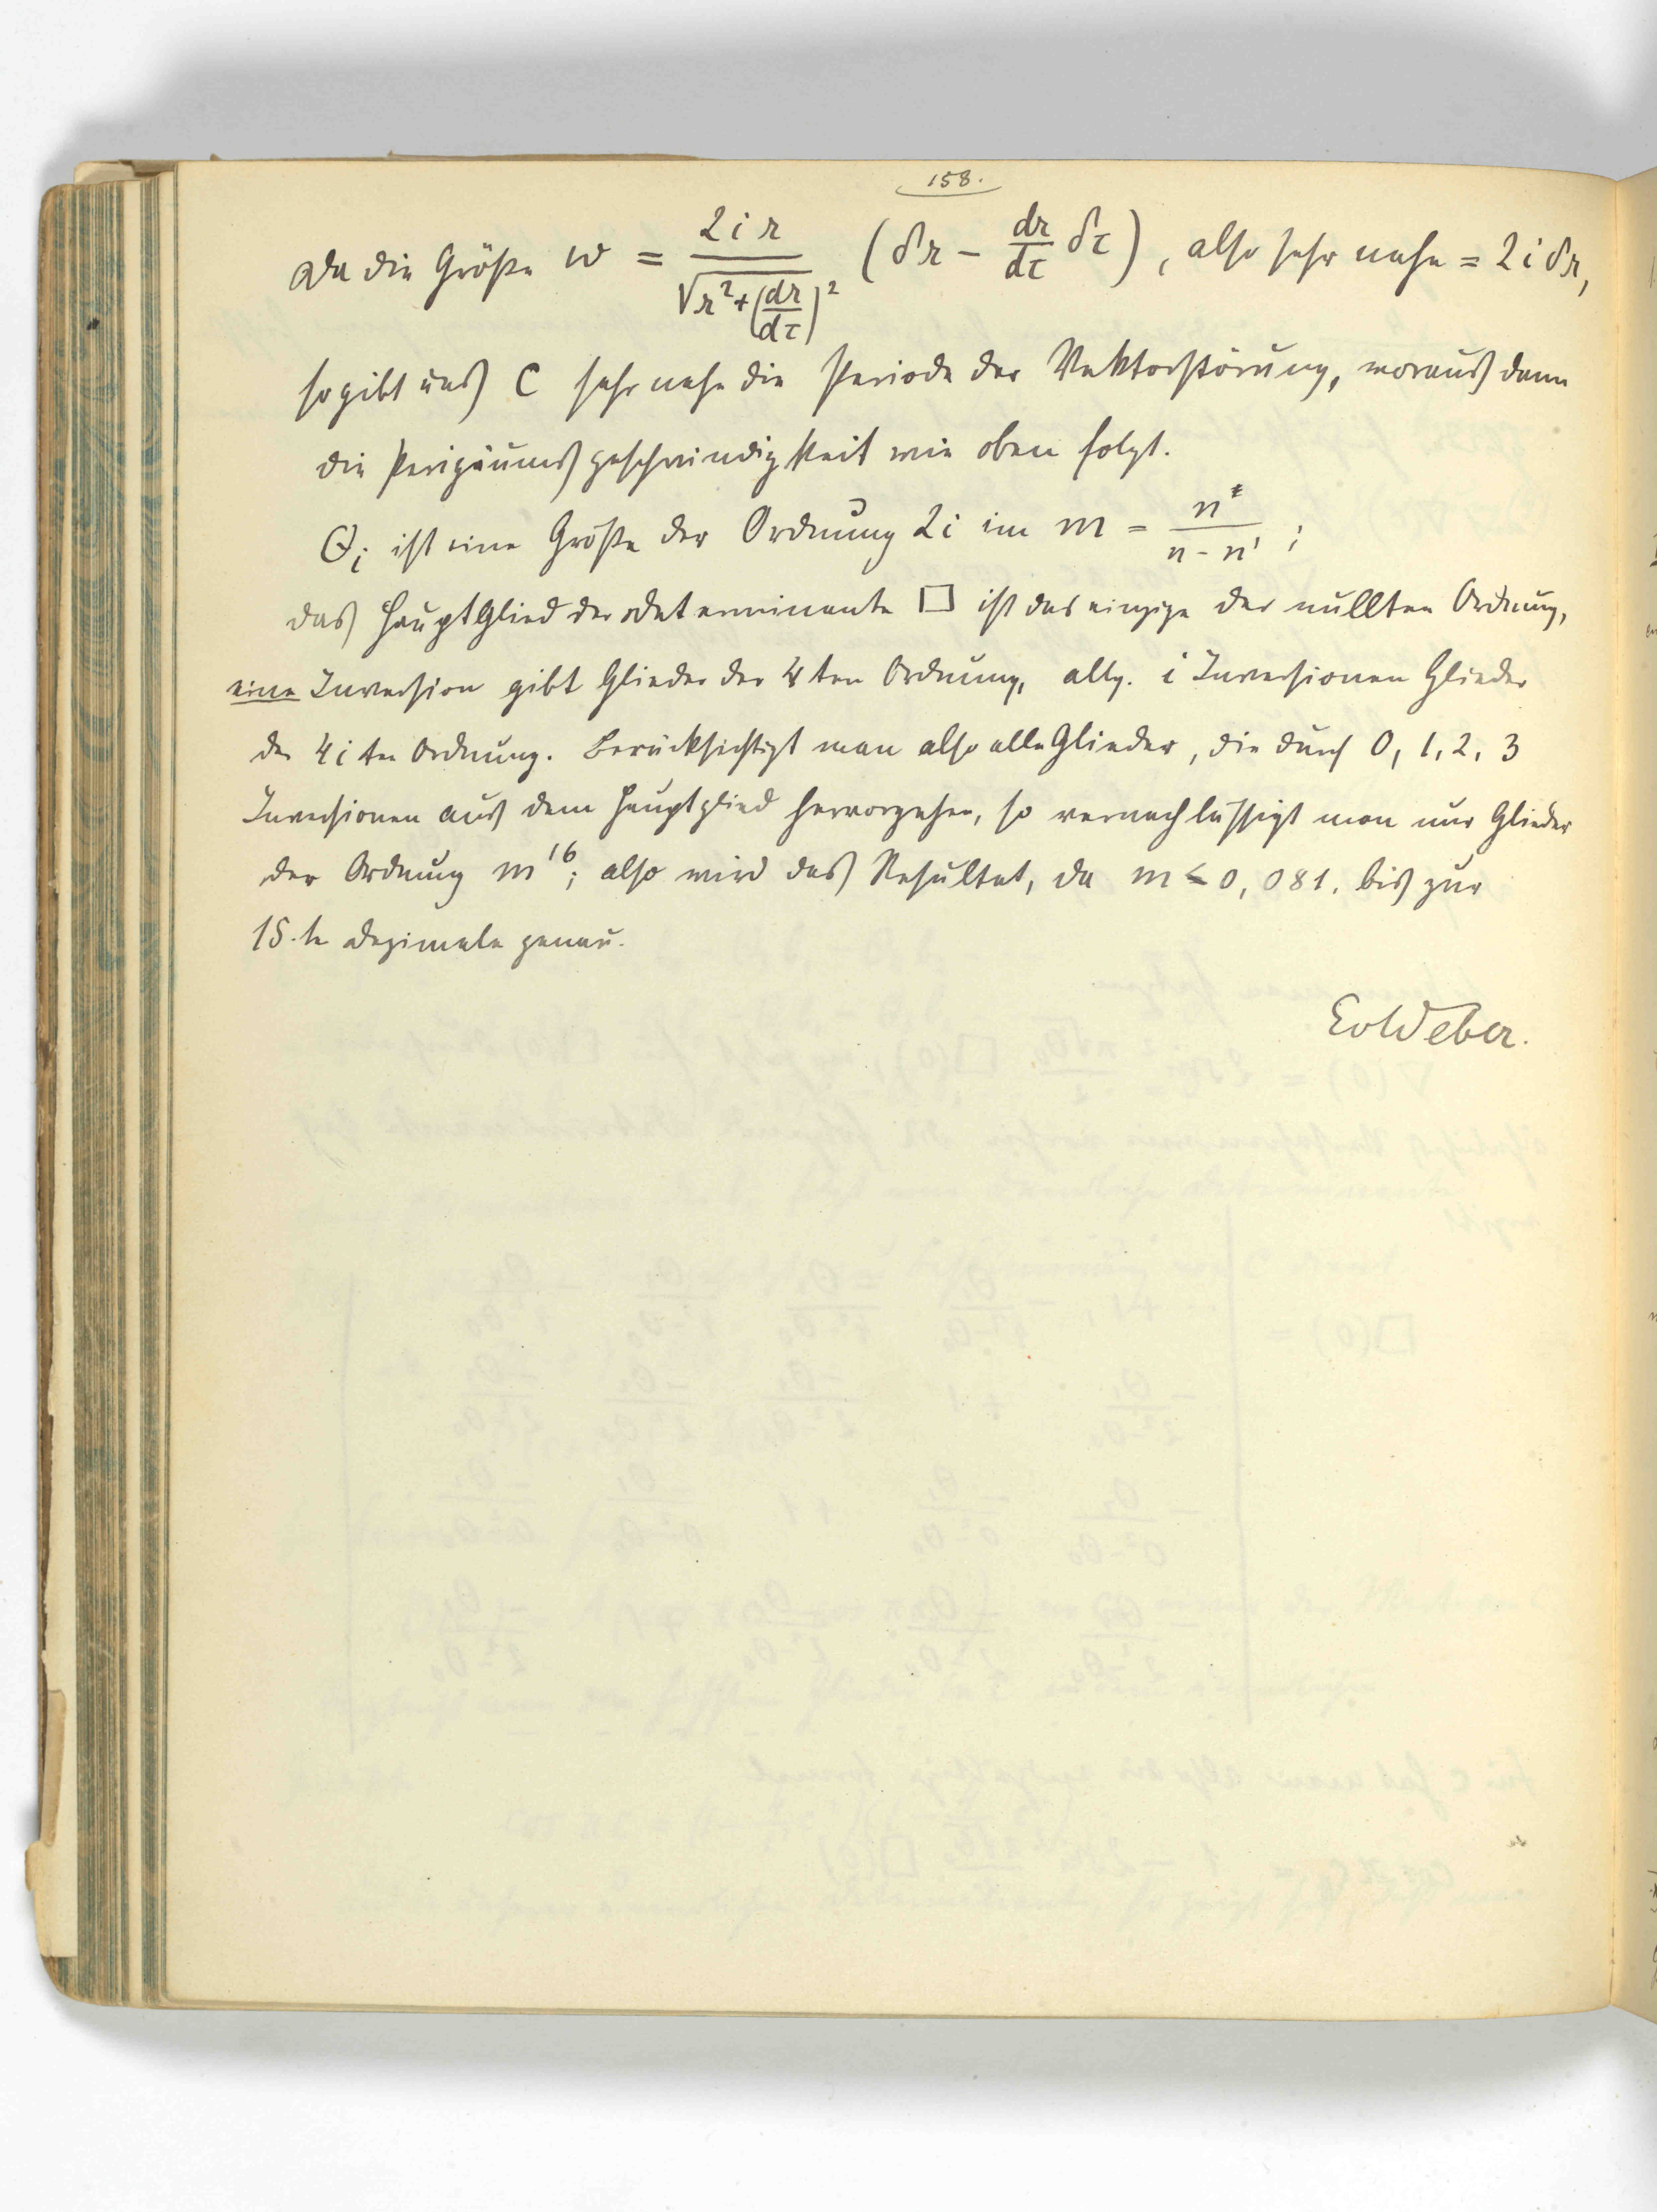 158.
Da die Größe w = \frac{2 i r}{\sqrt{r^2 + (\frac{dr}{dτ})^2}} (δr − \frac{dr}{dτ} δτ), also sehr nahe = 2 i δr,
so gibt uns c sehr nahe die Periode der Vektorstörung, woraus dann
die Perigäumsgeschwindigkeit wie oben folgt.
Θ_i ist eine Größe der Ordnung 2i im m = \frac{n'}{n - n'} ;
das Hauptglied der Determinante □ ist das einzige der nullten Ordnung,
eine Inversion gibt Glieder der 4ten Ordnung, allg. i Inversionen Glieder
der 4i ten Ordnung. Berücksichtigt man also alle Glieder, die durch 0, 1, 2, 3
Inversionen aus dem Hauptglied hervorgehen, so vernachlässigt man nur Glieder
der Ordnung m^{16}; also wird das Resultat, da m ≤ 0,081. bis zur
15.te Dezimale genau.
Ed Weber.